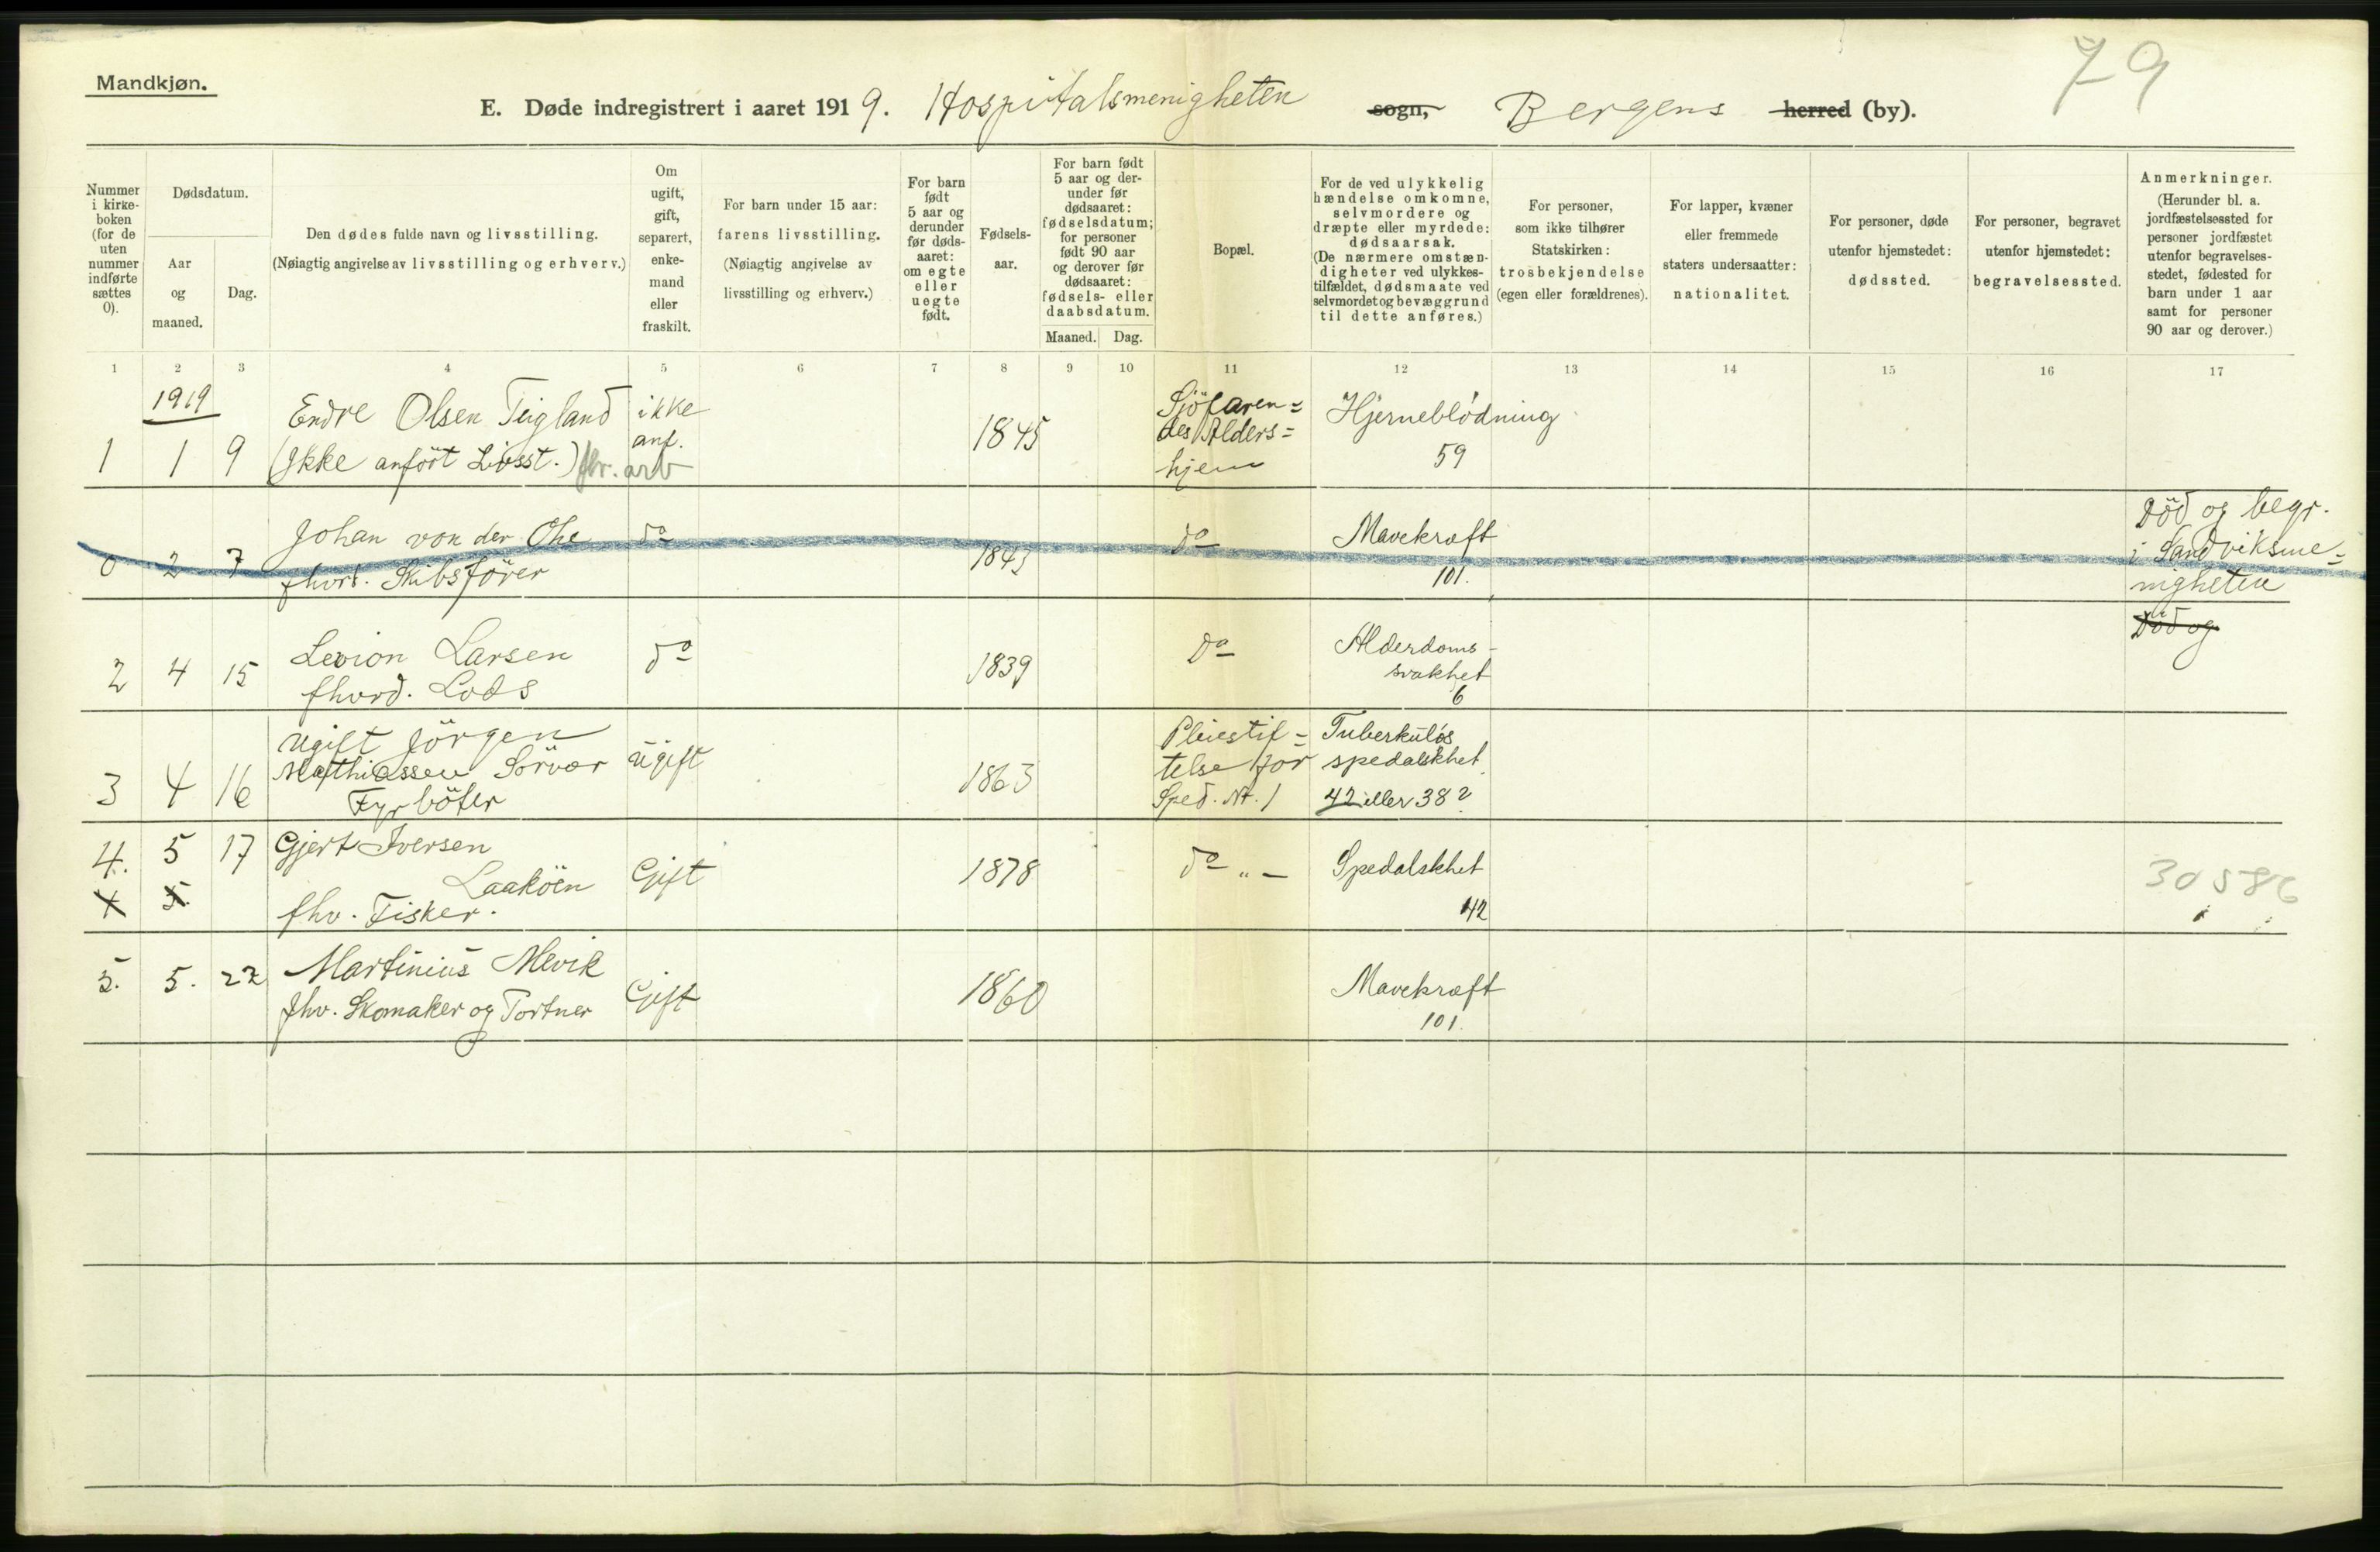 Mandkjøn.
79
E. Døde indregistrert i aaret 1919. Hospitalsmenigheten sogn, Bergens herred (by).
Nummer i kirke-boken (for de uten nummer indførte sættes 0).
Dødsdatum.
Aar og maaned.
Dag.
Den dødes fulde navn og livsstilling.
(Nøiagtig angivelse av livsstilling og erhverv.)
Om ugift, gift, separert, enke-mand eller fraskilt.
For barn under 15 aar:
farens livsstilling.
(Nøiagtig angivelse av
livsstilling og erhverv.)
For barn født 5 aar og derunder før døds-aaret: om egte eller uegte født.
Fødsels-aar.
For barn født 5 aar og der-under før dødsaaret: fødselsdatum; for personer født 90 aar og derover før dødsaaret: fødsels- eller daabsdatum.
Maaned. Dag.
Bopæl.
For de ved ulykkelig hændelse omkomne, selvmordere og dræpte eller myrdede: dødsaarsak. (De nærmere omstæn-digheter ved ulykkes-tilfældet, dødsmaate ved selvmordet og bevæggrund til dette anføres.)
For personer, som ikke tilhører Statskirken: trosbekjendelse (egen eller forældrenes).
For lapper, kvæner eller fremmede staters undersaatter: nationalitet.
For personer, døde utenfor hjemstedet: dødssted.
For personer, begravet utenfor hjemstedet: begravelsessted.
Anmerkninger.
(Herunder bl. a. jordfæstelsessted for personer jordfæstet utenfor begravelses-stedet, fødested for barn under 1 aar samt for personer 90 aar og derover.)
1 2 3 4 5 6 7 8 9 10 11 12 13 14 15 16 17
1919
1 1 9 Endre Olsen Teigland ikke anf. 1845 Sjöfaren=des Alders=hjem Hjerneblödning
(Ikke anfört Livsst.) fhv. arb 59
0 2 7 Johan von der Ohe do 1843 do Mavekræft Död og begr. i Sandviksme=nigheten
fhvd. Skibsförer 101.
2 4 15 Levion Larsen do 1839 Do Alderdoms-svakhet Död og
fhvrd. Lods 6
3 4 16 Ugift Jörgen Ugift 1863 Pleiestif=telse for Sped. Nr. 1 Tuberkulös spedalskhet
Mathiassen Sörvær
Fyrböter 42 eller 38?
4. 5 17 Gjert Iversen Gift 1878 do " - Spedalskhet 30586
4 5. Laaköen
fhv. Fisker. 42
5. 5. 22 Martinius Mevik Gift 1860 Mavekræft
fhv. Skomaker og Portner 101.